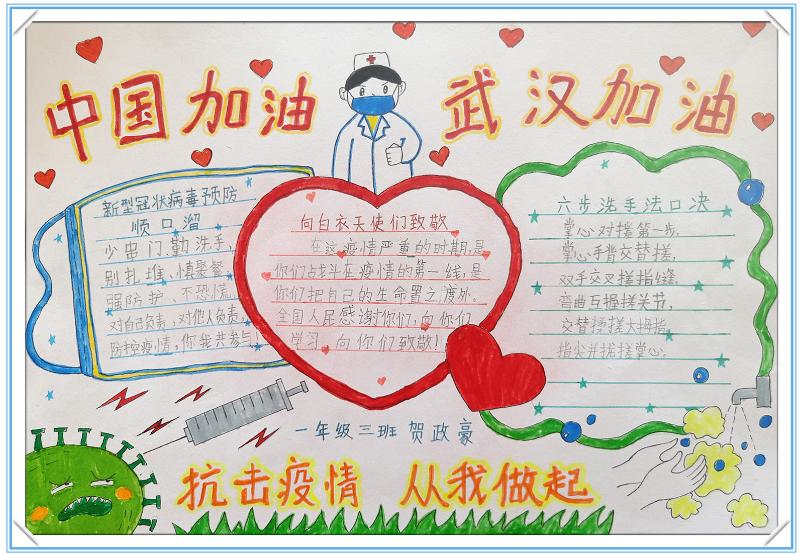 中国加油 武汉加油
新型冠状病毒预防
顺口溜
少串门、勤洗手,
别扎堆、慎聚餐,
强防护、不恐慌,
对自己负责,对他人负责,
防控疫情,你我共参与!
向白衣天使们致敬
在这疫情严重的时期,是
你们战斗在疫情的第一线,是
你们把自己的生命置之度外。
全国人民感谢你们,向你们
学习,向你们致敬!
六步洗手法口决
掌心对搓第一步,
掌心手背交替搓,
双手交叉搓指缝,
弯曲互搓搓关节,
交替揉搓大拇指,
指尖并拢搓掌心。
一年级三班 贺政豪
抗击疫情 从我做起